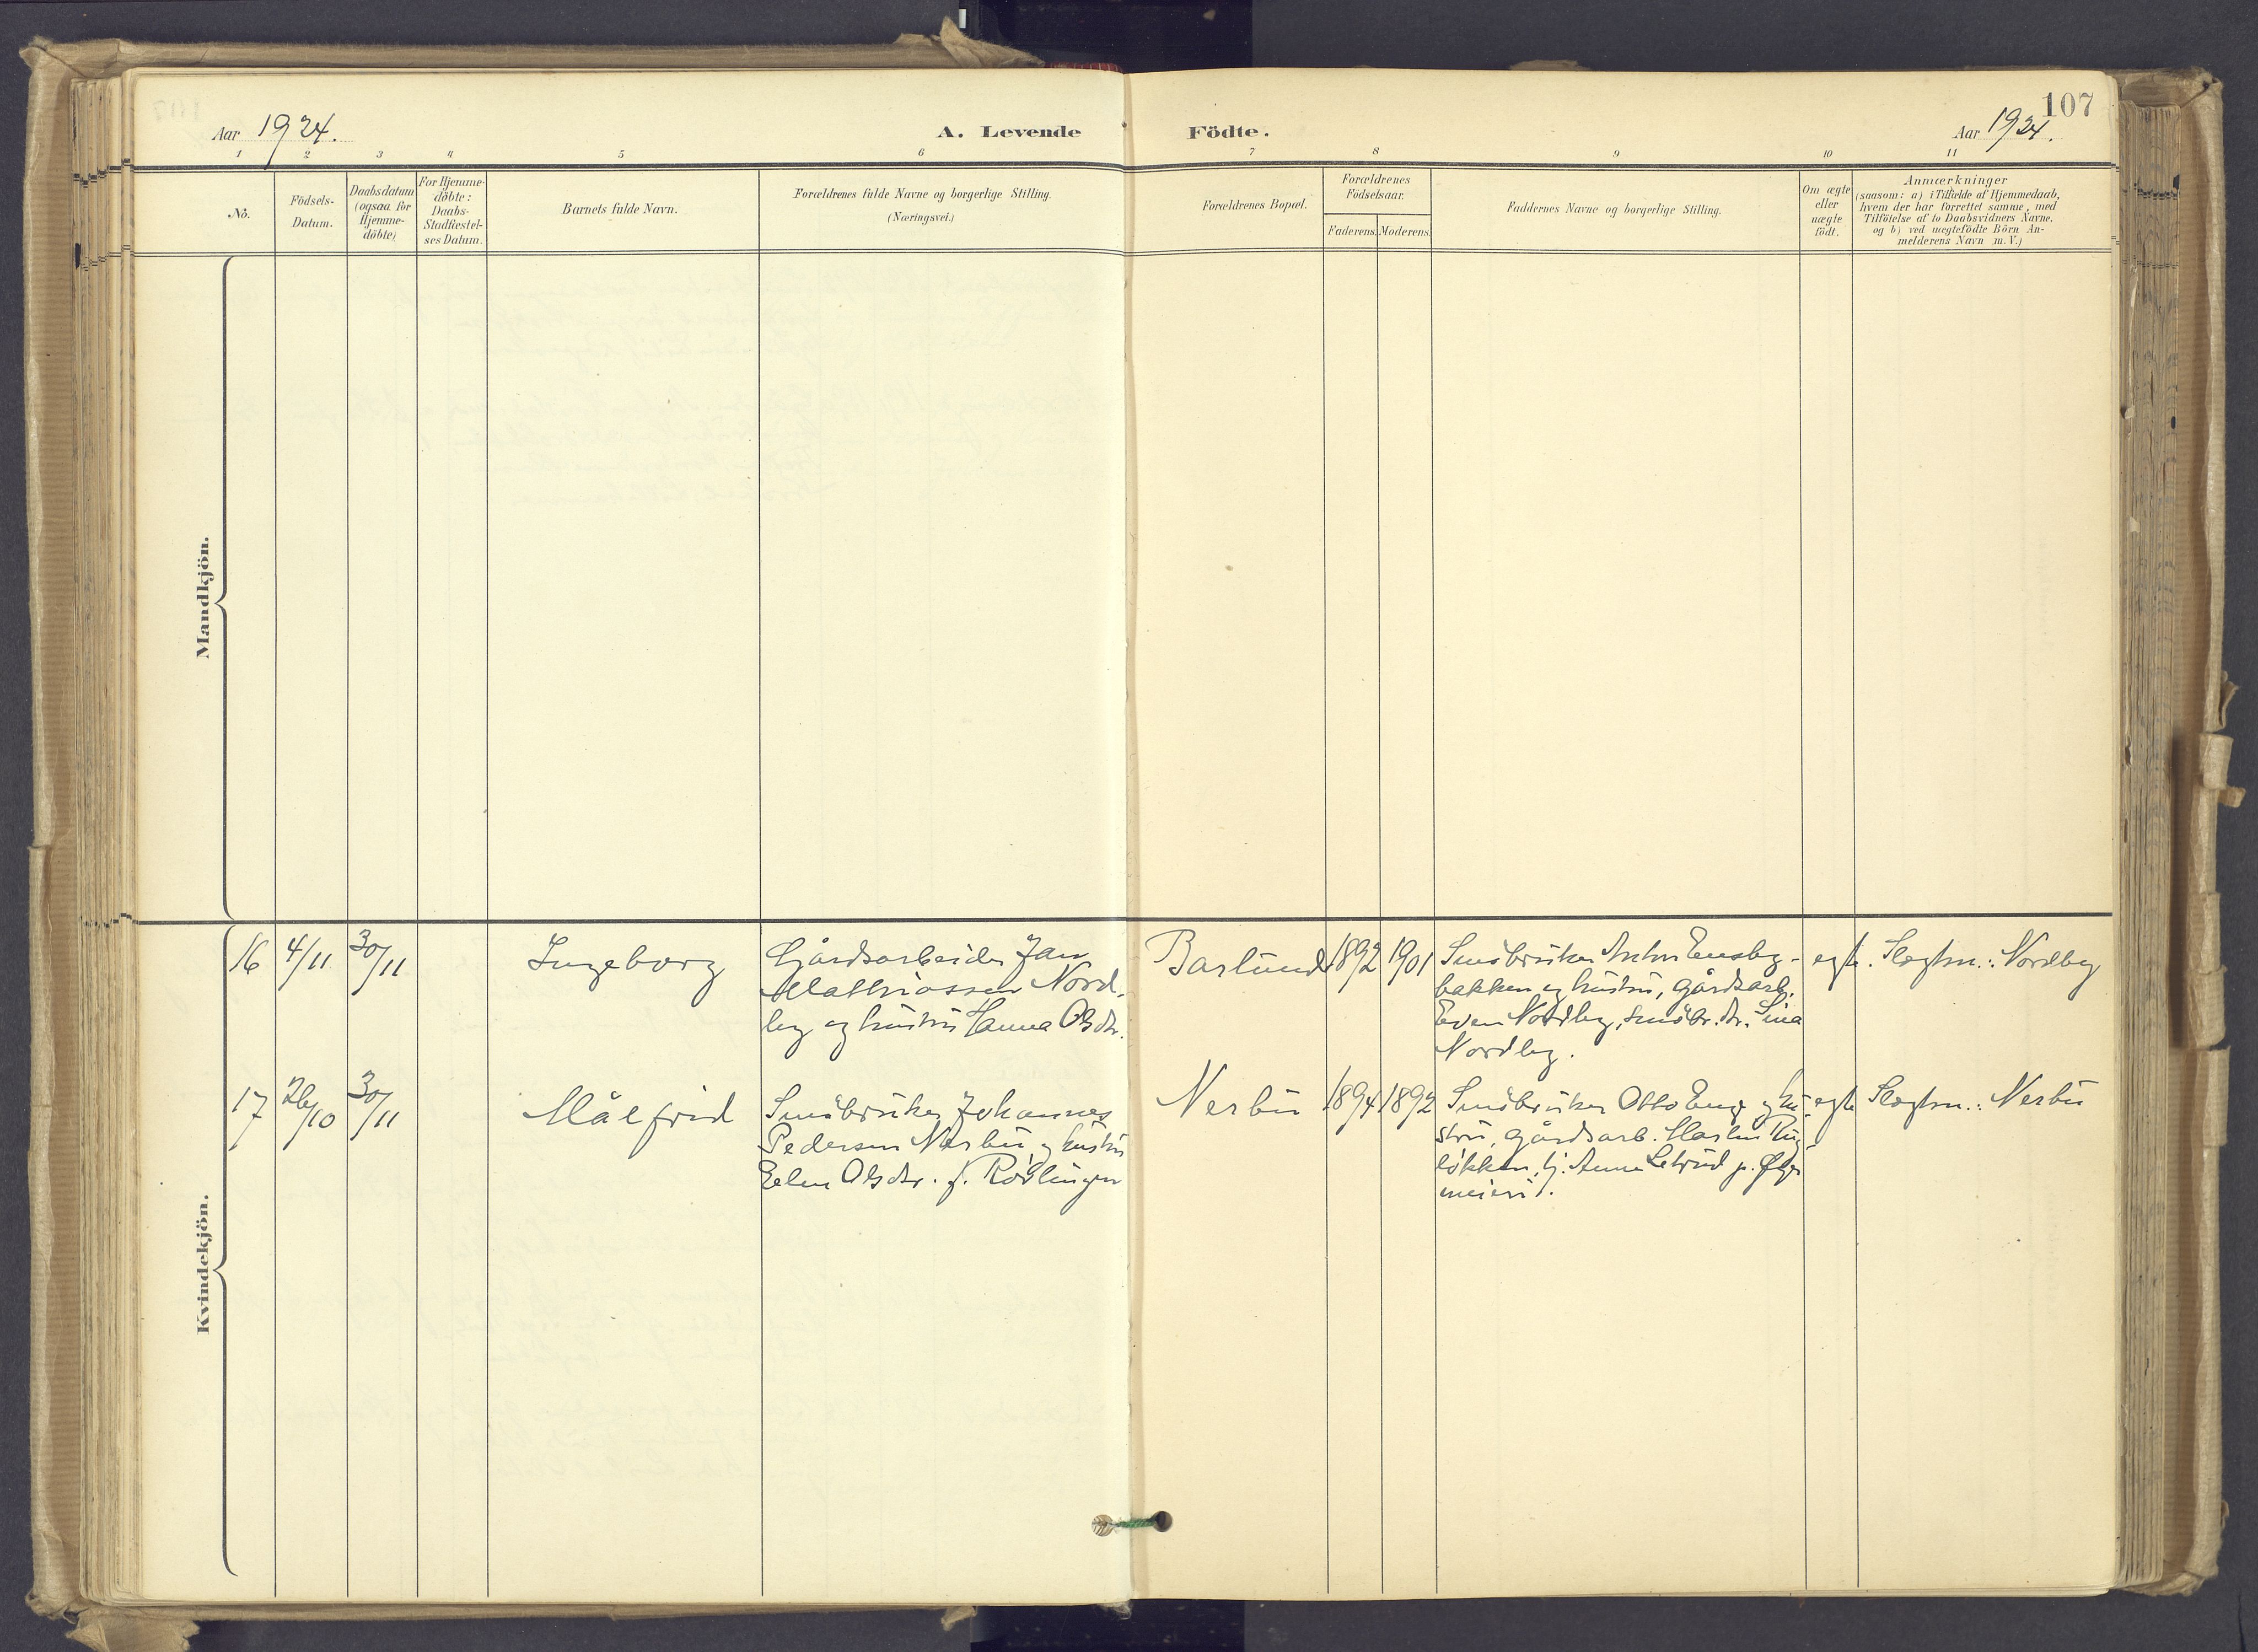 107
Aar 1924.
A. Levende Födte.
Aar 1924.
1 2 3 4 5 6 7 8 9 10 11
No.
Födsels-
Datum.
Daabsdatum
(ogsaa for
Hjemme-
döbte)
For Hjemme-
döbte:
Daabs-
Stadfæstel-
ses Datum.
Barnets fulde Navn.
Forældrenes fulde Navne og borgerlige Stilling.
(Næringsvei.)
Forældrenes Bopæl.
Forældrenes
Födselsaar.
Faderens. Moderens.
Faddernes Navne og borgerlige Stilling.
Om ægte
eller
uægte
födt.
Anmærkninger
(saasom: a) i Tilfælde af Hjemmedaab,
hvem der har forrettet samme, med
Tilföielse af to Daabsvidners Navne,
og b) ved uægtefödte Börn An-
melderens Navn m. V.)
Mandkjön.
Kvindekjön.
16 4/11 30/11 Ingeborg
Gårdsarbeider Jan
Mathiassen Nord-
by og hustru Hanna Olsdtr.
Barlund 1892 1901
Småbruker Anton Ensby-
bakken og hustru, gårdsarb.
Even Nordby, småbr. dtr. Lina
Nordby.
egte. Slegtsn.: Nordby
17 26/10 30/11 Målfrid
Småbruker Johannes
Pedersen Nerbu og hustru
Elen Olsdtr. f. Röslingen
Nerbu 1894 1892
Småbruker Otto Eng og hu-
stru, gårdsarb. Martin
løkken, tj. Anna p.
meieri.
egte Slegtsn.: Nerbu